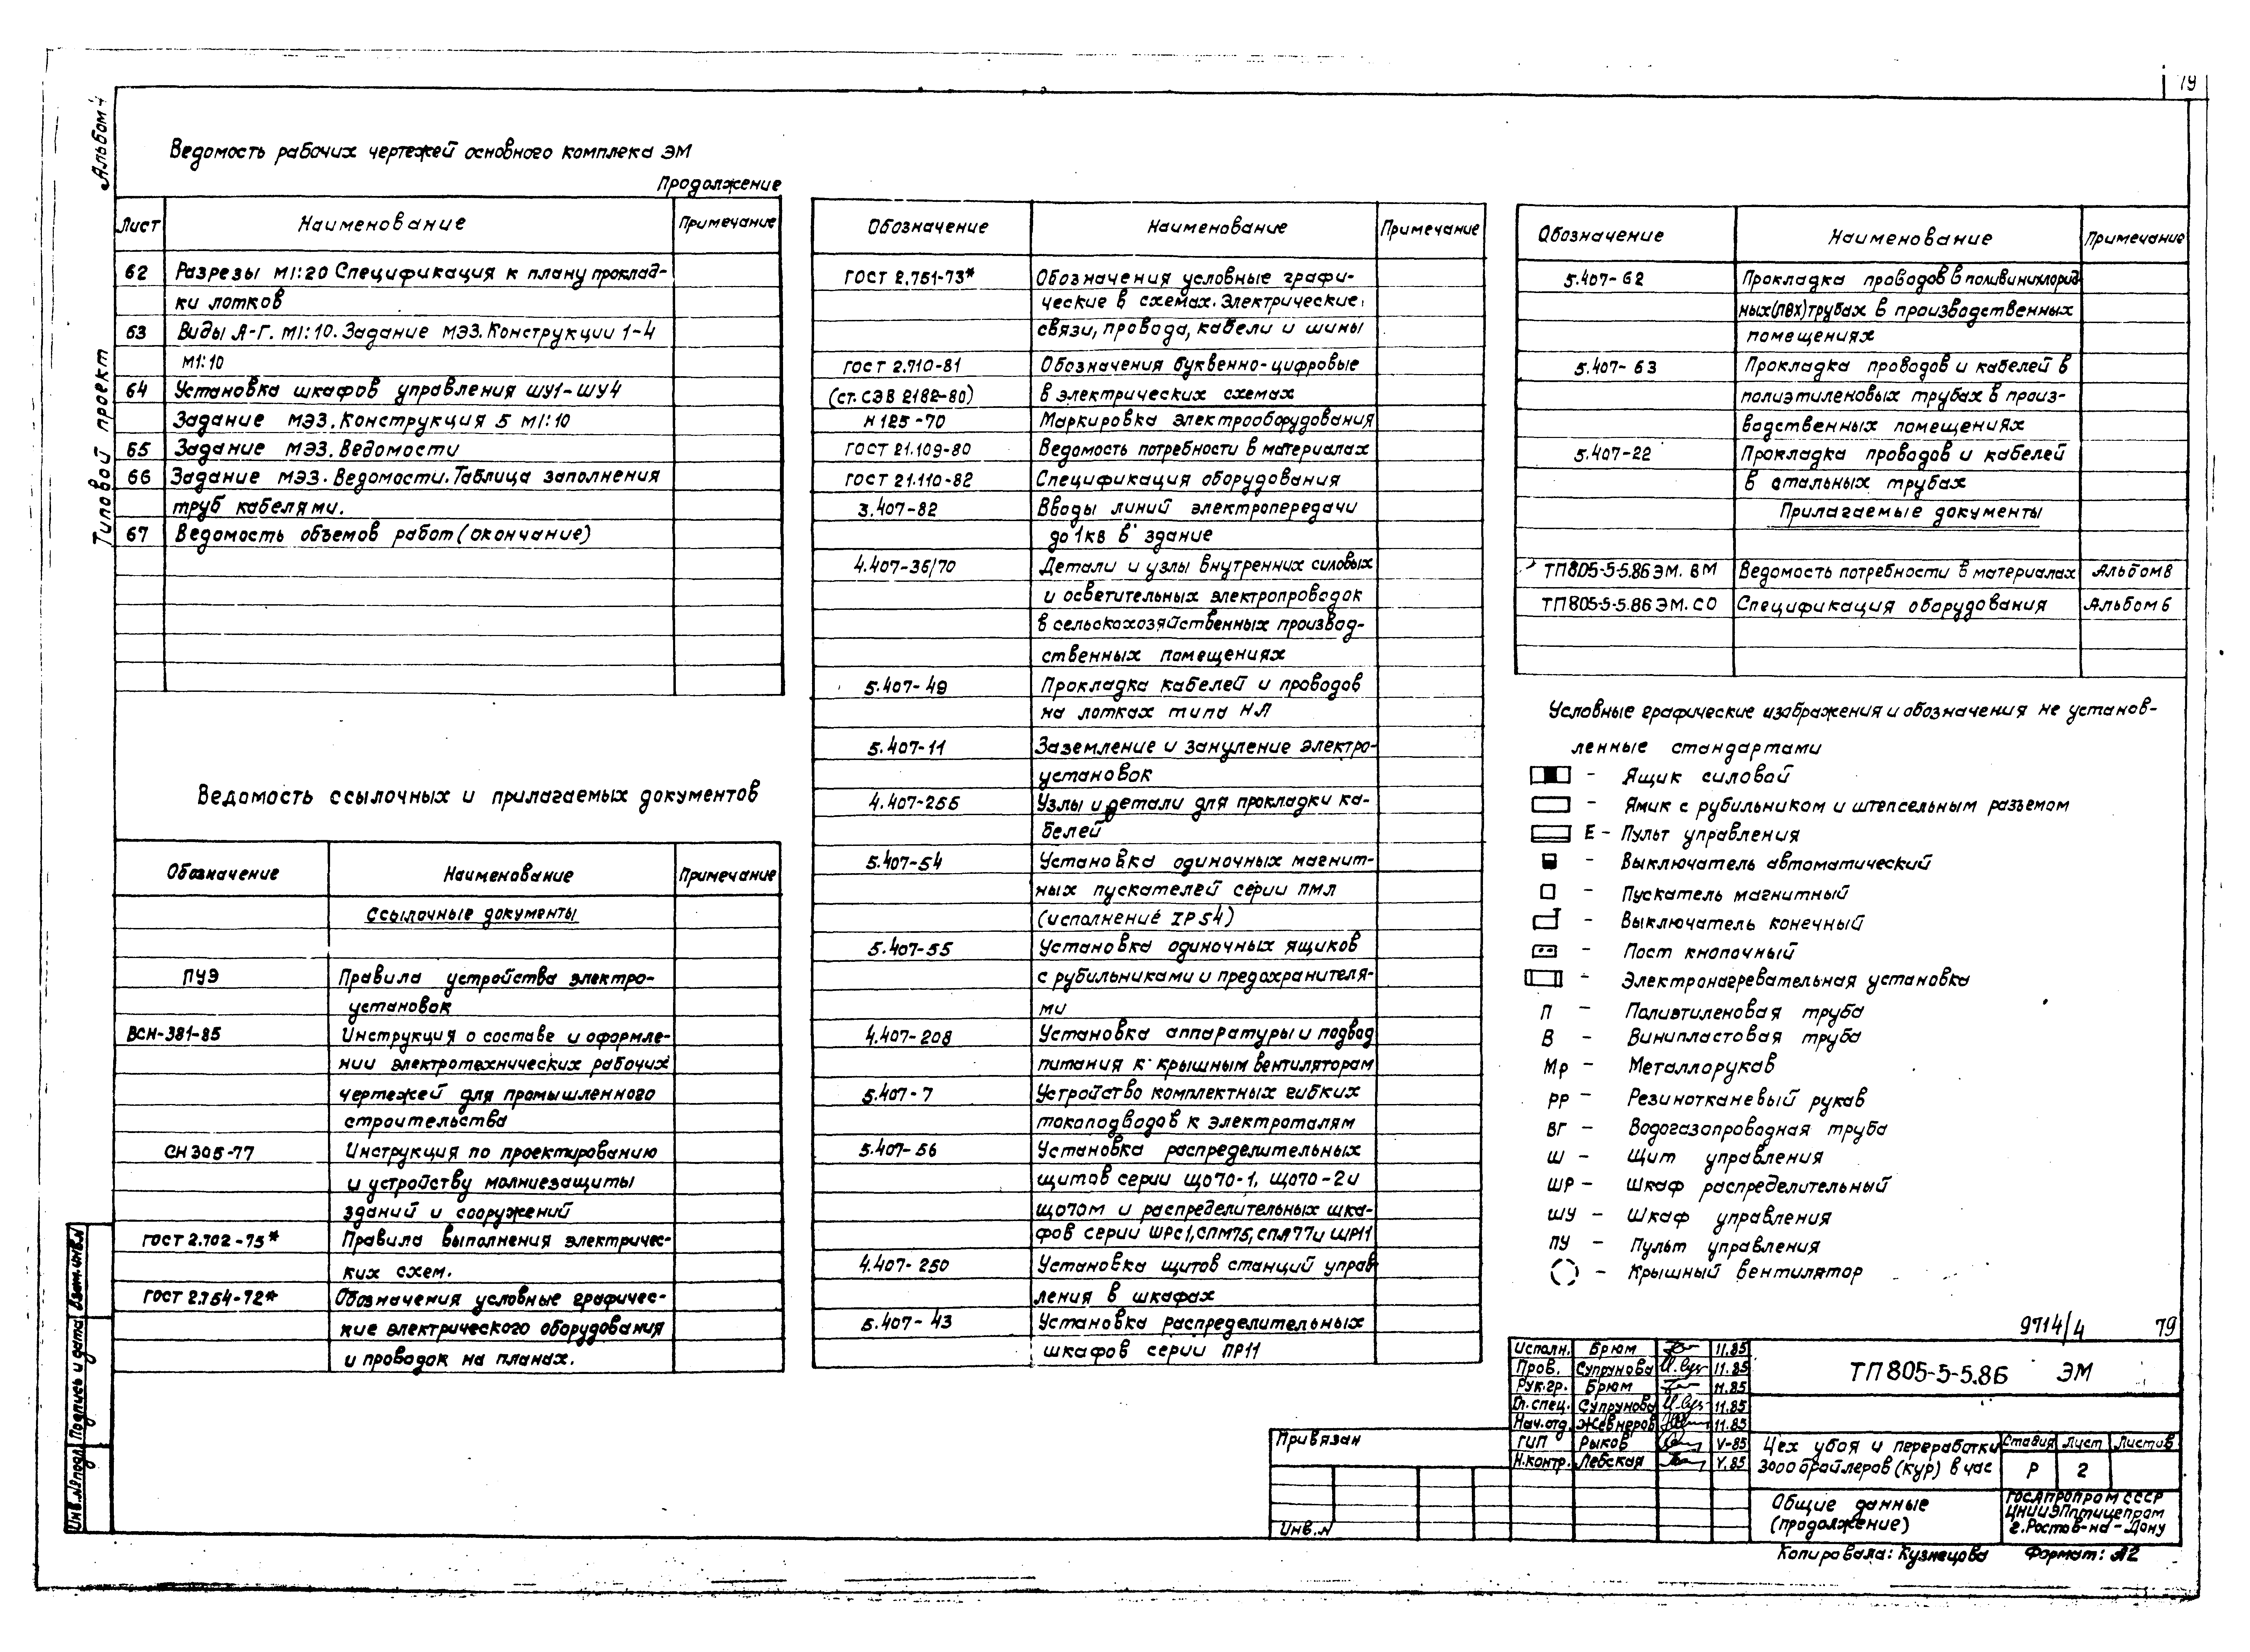 79
Альбом 4
Типовой проект
Ведомость рабочих чертежей основного комплека ЭМ
Продолжение
Лист Наименование Примечание
62 Разрезы М1:20 Спецификация к плану проклад-
ки лотков
63 Виды А-Г. М1:10. Задание МЭЗ. Конструкции 1-4
М1:10
64 Установка шкафов управления ШУ1-ШУ4
Задание МЭЗ. Конструкция 5 М1:10
65 Задание МЭЗ. Ведомости
66 Задание МЭЗ. Ведомости. Таблица заполнения
труб кабелями.
67 Ведомость объемов работ (окончание)
Ведомость ссылочных и прилагаемых документов
Обозначение Наименование Примечание
Ссылочные документы
ПУЭ Правила устройства электро-
установок
ВСН-381-85 Инструкция о составе и оформле-
нии электротехнических рабочих
чертежей для промышленного
строительства
СН 305-77 Инструкция по проектированию
и устройству молниезащиты
зданий и сооружений
ГОСТ 2.702-75* Правила выполнения электричес-
ких схем.
ГОСТ 2.754-72* Обозначения условные графичес-
кие электрического оборудования
и проводок на планах.
Обозначение Наименование Примечание
ГОСТ 2.751-73* Обозначения условные графи-
ческие в схемах. Электрические
связи, провода, кабели и шины
ГОСТ 2.710-81 Обозначения буквенно-цифровые
(ст. СЭВ 2182-80) в электрических схемах
Н 125-70 Маркировка электрооборудования
ГОСТ 21.109-80 Ведомость потребности в материалах
ГОСТ 21.110-82 Спецификация оборудования
3.407-82 Вводы линий электропередачи
до 1кв в здание
4.407-36/70 Детали и узлы внутренних силовых
и осветительных электропроводок
в сельскохозяйственных производ-
ственных помещениях
5.407-49 Прокладка кабелей и проводов
на лотках типа НЛ
5.407-11 Заземление и зануление электро-
установок
4.407-255 Узлы и детали для прокладки ка-
белей
5.407-54 Установка одиночных магнит-
ных пускателей серии ПМЛ
(исполнение IP54)
5.407-55 Установка одиночных ящиков
с рубильниками и предохранителя-
ми
4.407-208 Установка аппаратуры и подвод
питания к крышным вентиляторам
5.407-7 Устройство комплектных гибких
токоподводов к электроталям
5.407-56 Установка распределительных
щитов серии ЩО70-1, ЩО70-2 и
ЩО70М и распределительных шка-
фов серии ШРС1, СПМ75, СПА77 и ШР11
4.407-250 Установка щитов станций управ
ления в шкафах
5.407-43 Установка распределительных
шкафов серии ПР11
Обозначение Наименование Примечание
5.407-62 Прокладка проводов в поливинилхлорид
ных (ПВХ) трубах в производственных
помещениях
5.407-63 Прокладка проводов и кабелей в
полиэтиленовых трубах в произ-
водственных помещениях
5.407-22 Прокладка проводов и кабелей
в стальных трубах
Прилагаемые документы
ТП 805-5-5.86 ЭМ. ВМ Ведомость потребности в материалах Альбом 8
ТП 805-5-5.86 ЭМ. СО Спецификация оборудования Альбом 6
Условные графические изображения и обозначения не установ-
ленные стандартами
– Ящик силовой
– Ямик с рубильником и штепсельным разъемом
Е – Пульт управления
– Выключатель автоматический
– Пускатель магнитный
– Выключатель конечный
– Пост кнопочный
– Электронагревательная установка
П – Полиэтиленовая труба
В – Винипластовая труба
Мр – Металлорукав
РР – Резинотканевый рукав
ВГ – Водогазопроводная труба
Ш – Щит управления
ШР – Шкаф распределительный
ШУ – Шкаф управления
ПУ – Пульт управления
– Крышный вентилятор
9714/4 79
Исполн. Брюм 11.85
Пров. Супрунова 11.85
Рук.гр. Брюм 11.85
Гл.спец. Супрунова 11.85
Нач.отд. Жевнеров 11.85
ГИП Рыков V-85
Н.контр. Левская V.85
ТП 805-5-5.86 ЭМ
Цех убоя и переработки
3000 бройлеров (кур) в час
Стадия Лист Листов
Р 2
Общие данные
(продолжение)
ГОСАГРОПРОМ СССР
ЦНИИЭПптицепром
г. Ростов-на-Дону
Привязан
Инв. N
Копировала: Кузнецова Формат: А2
Инв. № подл. Подпись и дата Взам. инв. N